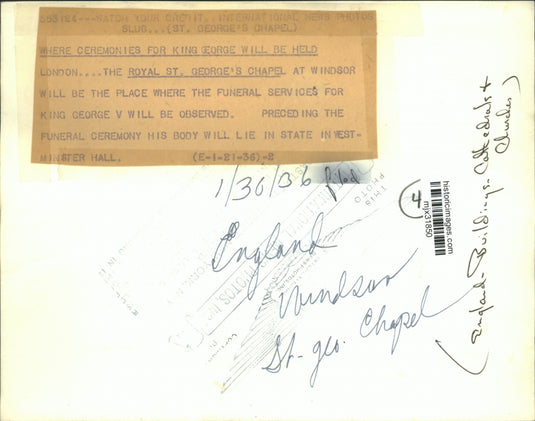 553124---WATCH YOUR CREDIT..INTERNATIONAL NEWS PHOTOS
SLUG...(ST. GEORGE'S CHAPEL)
WHERE CEREMONIES FOR KING GEORGE WILL BE HELD
LONDON....THE ROYAL ST. GEORGE'S CHAPEL AT WINDSOR
WILL BE THE PLACE WHERE THE FUNERAL SERVICES FOR
KING GEORGE V WILL BE OBSERVED. PRECEDING THE
FUNERAL CEREMONY HIS BODY WILL LIE IN STATE IN WEST-
MINSTER HALL. (E-1-21-36)-2
1/30/36 filed
THIS
PHOTO
England
Windsor
St. Geo. Chapel
4
historicimages.com
mjx31850
(England-Buildings-Cathedrals &
Churches)